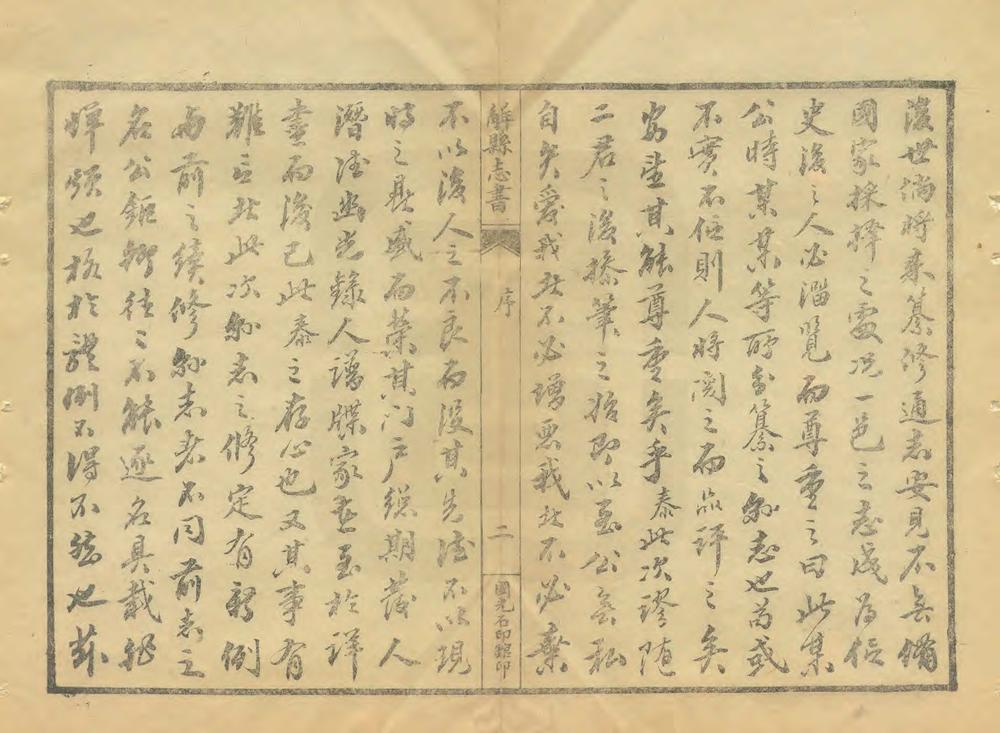 後世倘將來纂修通志安見不與備
國家採擇之處況一邑之志成為信
史後之人必溜覽而尊重之曰此某
公時某某等所彙纂之縣志也苟或
不實不住則人將閱之而品評之矣
安望其能尊重矣乎泰此次謬隨
二君之後搽筆之始即以至公無私
自矢愛我者不必增惡我者不必棄
解縣志書
序
二
國光石印館印
不以後人之不良而沒其先德不以現
時之鼎盛而榮其門戶總期發人
潛德幽光錄人譜牒家乘至於詳
盡而後已此泰之存心也又其事有
難言者此次縣志之修定有新例
與前之續修縣志者不同前志之
名公鉅卿往往不能逐名具載非
輝頌也格於體例不得不然也茲